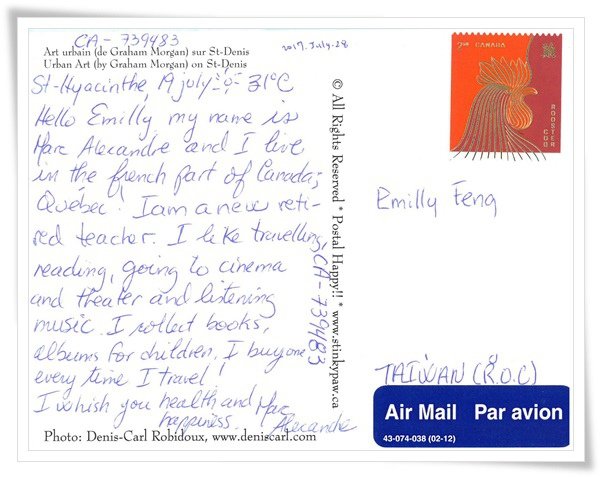 CA-739483
2017. July. 28
Art urbain (de Graham Morgan) sur St-Denis
Urban Art (by Graham Morgan) on St-Denis
St-Hyacinthe, 19 july 31°C
Hello Emilly my name is
Marc Alexandre and I live
in the french part of Canada;
Québec! I am a new reti-
red teacher. I like travelling,
reading, going to cinema
and theater and listening
music. I collect books,
albums for children. I buy one
every time I travel!
I whish you health and
happiness. Marc
Alexandre
Photo: Denis-Carl Robidoux, www.deniscarl.com
© All Rights Reserved * Postal Happy!! * www.stinkypaw.ca
CA-739483
CANADA
ROOSTER
COQ
Emilly Feng
TAIWAN (R.O.C)
Air Mail Par avion
43-074-038 (02-12)